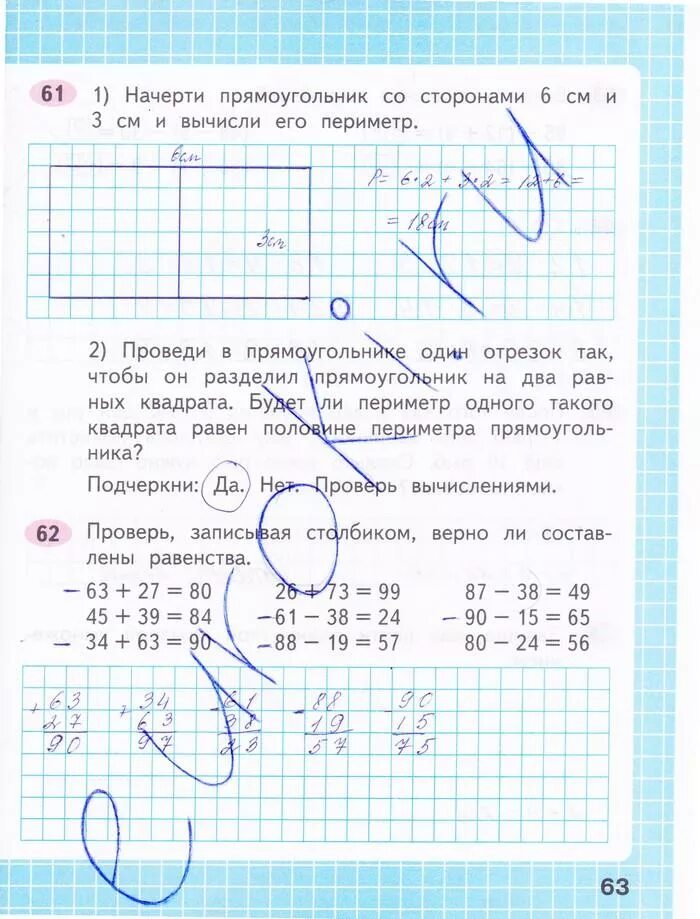 61 1) Начерти прямоугольник со сторонами 6 см и
3 см и вычисли его периметр.
6см
P= 6·2 + 3·2 = 12+6 =
= 18см
3см
2) Проведи в прямоугольнике один отрезок так,
чтобы он разделил прямоугольник на два рав-
ных квадрата. Будет ли периметр одного такого
квадрата равен половине периметра прямоуголь-
ника?
Подчеркни: Да. Нет. Проверь вычислениями.
62 Проверь, записывая столбиком, верно ли состав-
лены равенства.
– 63 + 27 = 80 26 + 73 = 99 87 – 38 = 49
45 + 39 = 84 – 61 – 38 = 24 – 90 – 15 = 65
– 34 + 63 = 90 – 88 – 19 = 57 80 – 24 = 56
+ 63 + 34 - 61 - 88 - 90
27 63 38 19 15
90 97 23 57 75
63